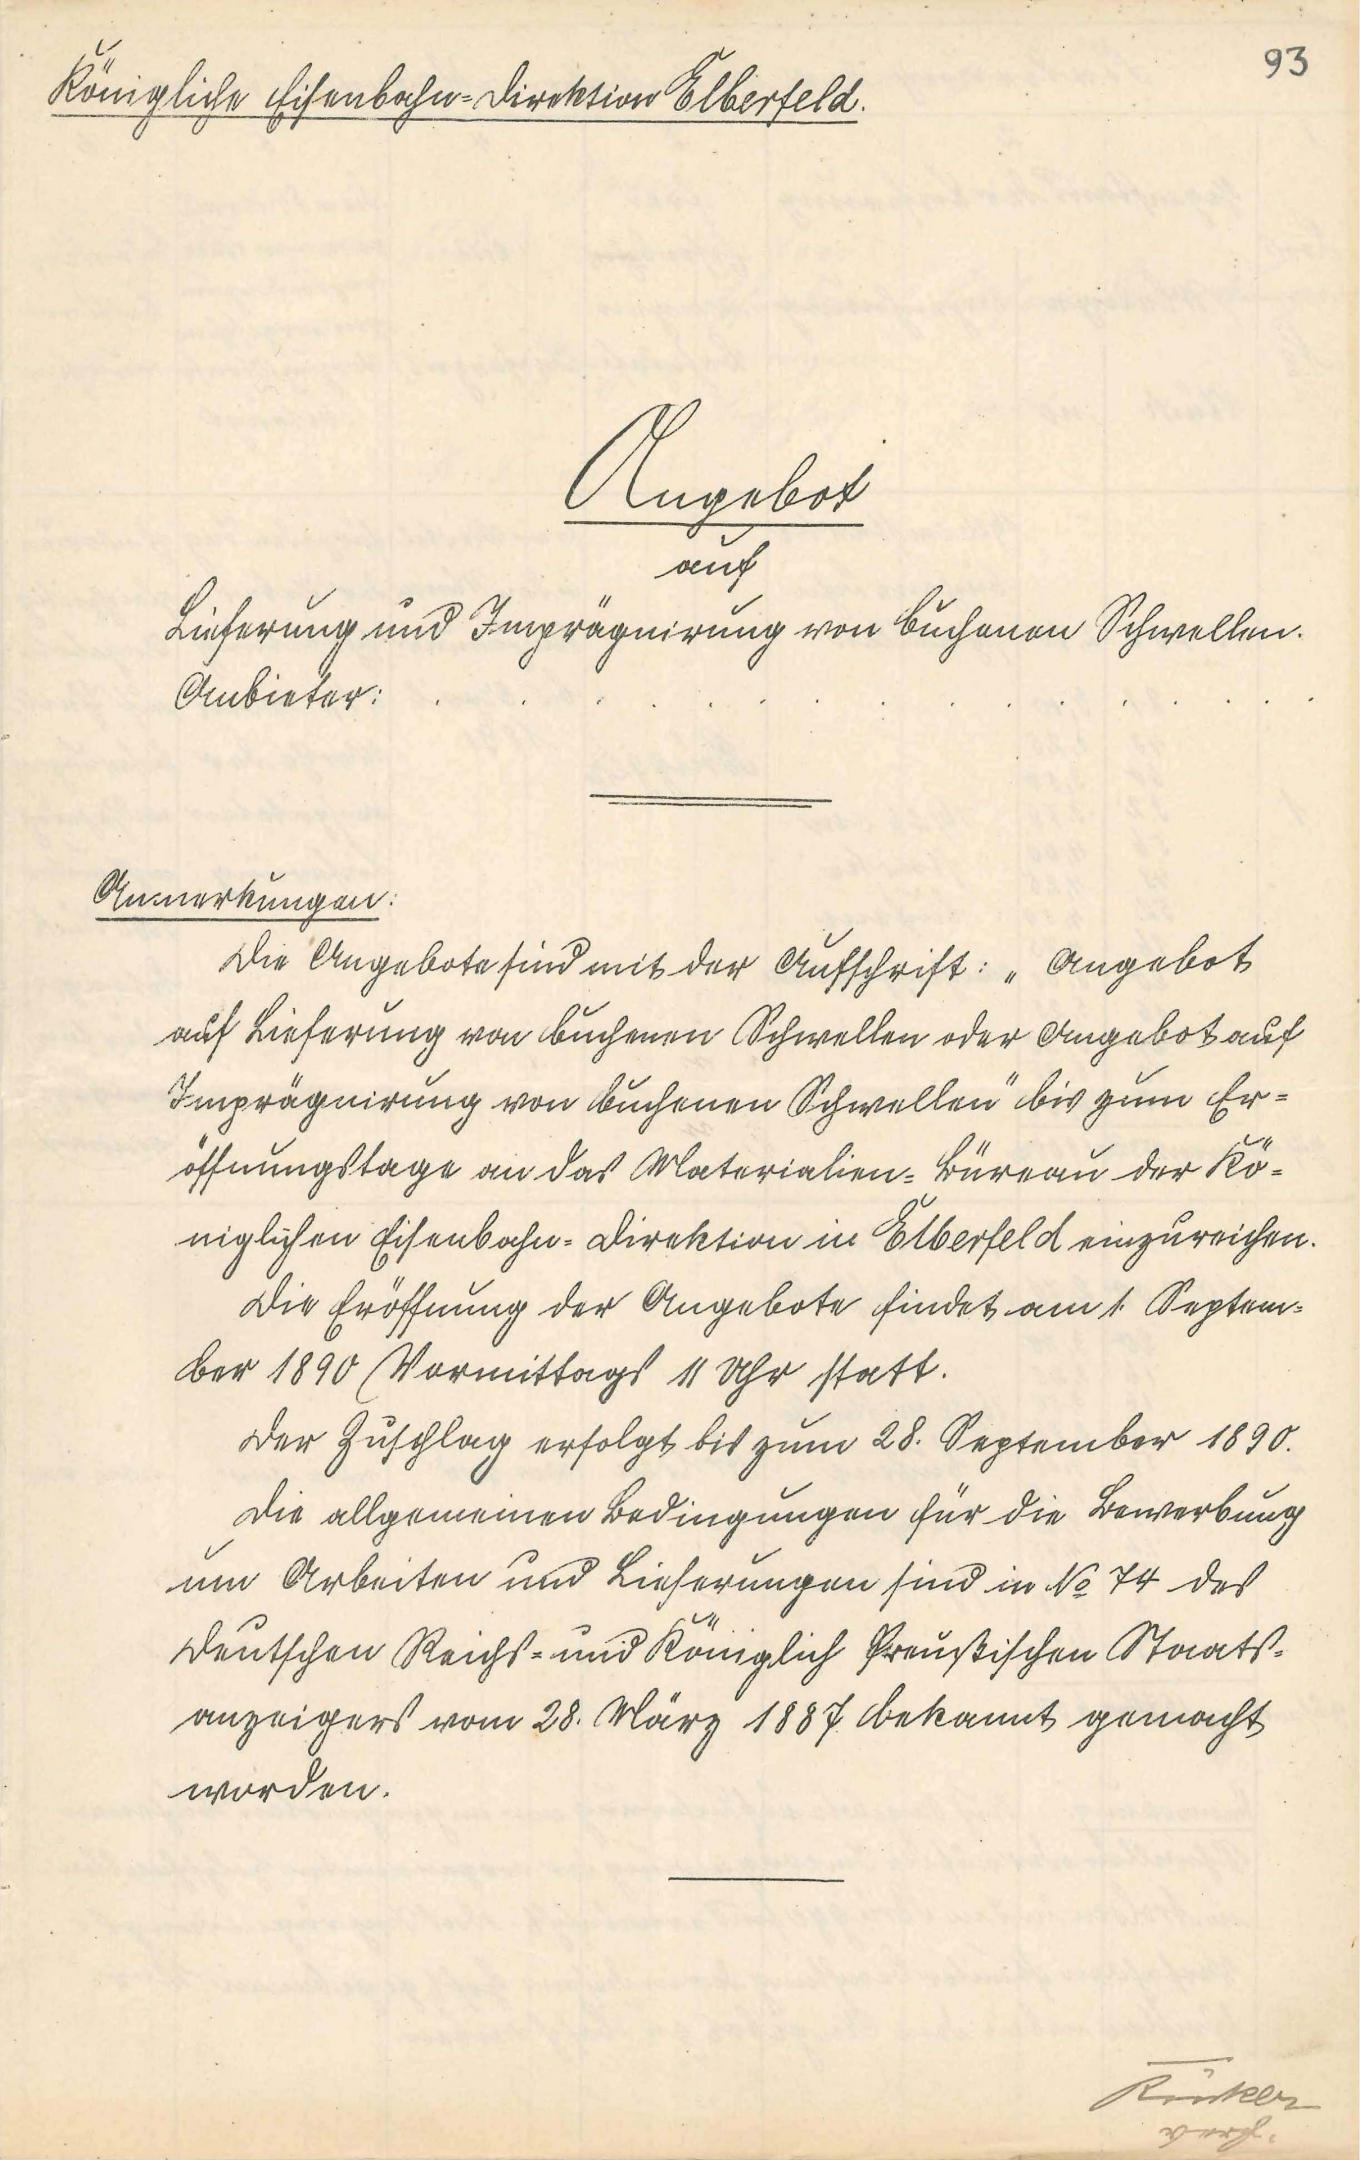 93
Königliche Eisenbahn-Direktion Elberfeld.
Angebot
auf
Lieferung und Imprägnirung von buchenen Schwellen.
Anbieter: . . . . . . . . . . . . . . .
Anmerkungen:
Die Angebote sind mit der Aufschrift: „Angebot
auf Lieferung von buchenen Schwellen oder Angebot auf
Imprägnirung von buchenen Schwellen" bis zum Er-
öffnungstage an das Materialien-Büreau der Kö-
niglichen Eisenbahn-Direktion in Elberfeld einzureichen.
Die Eröffnung der Angebote findet am 1. Septem-
ber 1890 Vormittags 11 Uhr statt.
Der Zuschlag erfolgt bis zum 28. September 1890.
Die allgemeinen Bedingungen für die Bewerbung
um Arbeiten und Lieferungen sind in No 74 des
Deutschen Reichs- und Königlich Preußischen Staats-
anzeigers vom 28. März 1887 bekannt gemacht
worden.